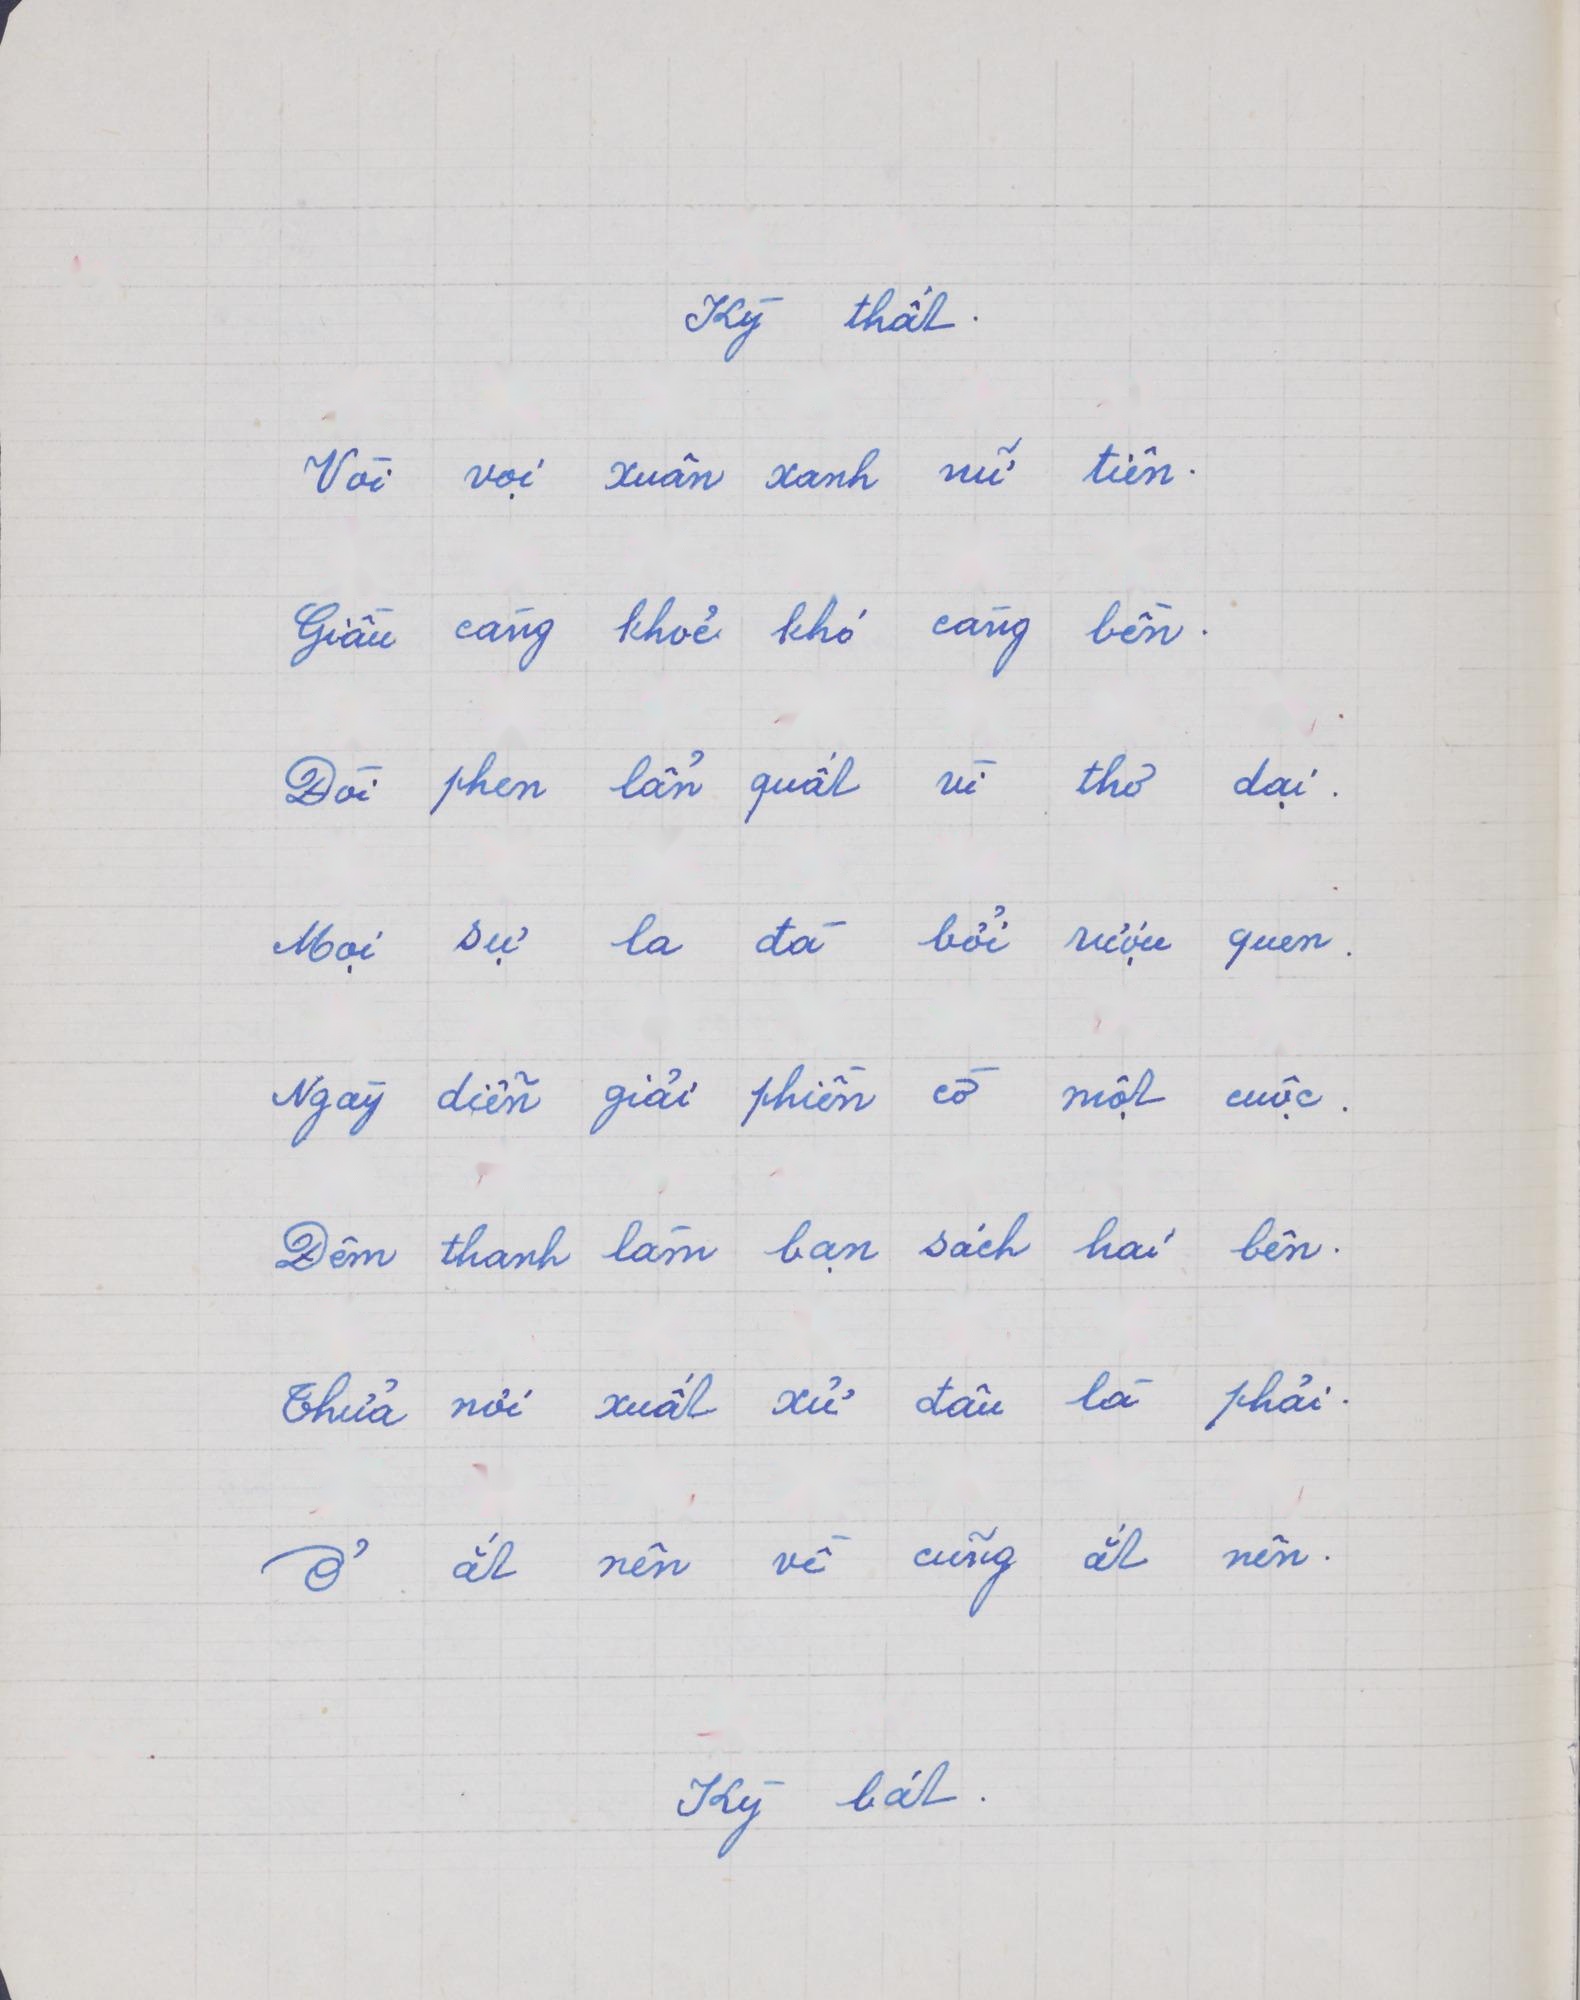 Kỳ thất.
Vòi vọi xuân xanh nữ tiên.
Giầu càng khoẻ khó càng bền.
Đòi phen lẩn quất vì thơ dại.
Mọi sự la đà bởi rượu quen.
Ngày diễn giải phiền cờ một cuộc.
Đêm thanh làm bạn sách hai bên.
Thửa nơi xuất xử đâu là phải.
Ở ắt nên về cũng ắt nên.
Kỳ bát.